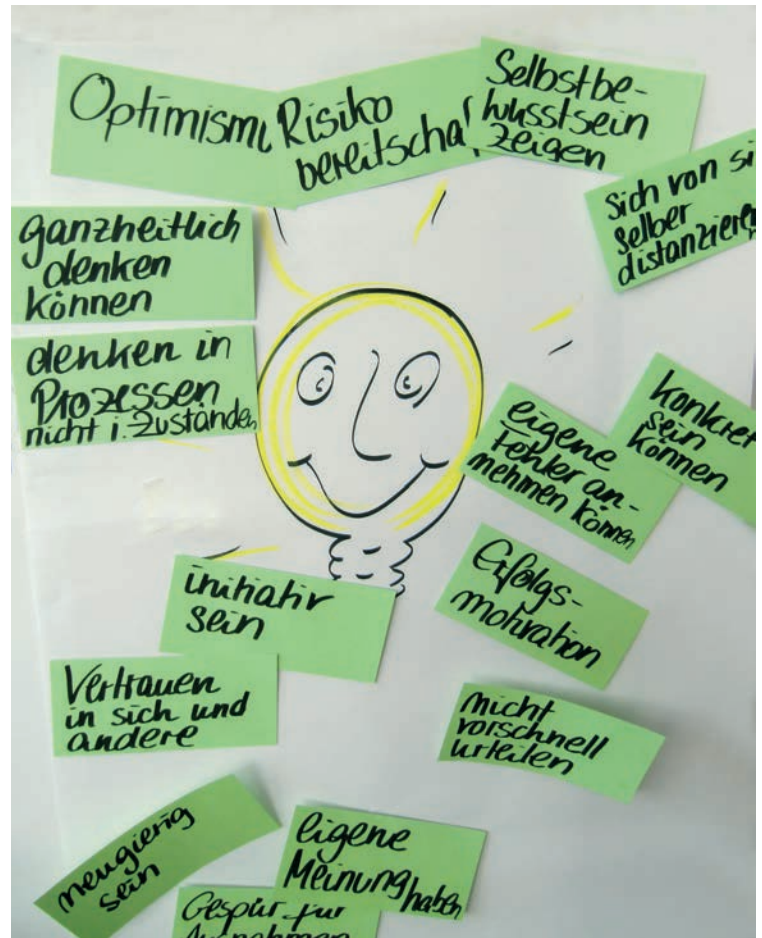 Optimismu
Risiko
bereitschaf
Selbstbe-
wusstsein
zeigen
Sich von si
selber
distanzieren
ganzheitlich
denken
können
denken in
Prozessen
nicht i. Zuständen
eigene
Fehler an-
nehmen können
konkret
sein
können
initiativ
sein
Erfolgs-
motivation
Vertrauen
in sich und
andere
nicht
vorschnell
urteilen
neugierig
sein
eigene
Meinung haben
Gespür für